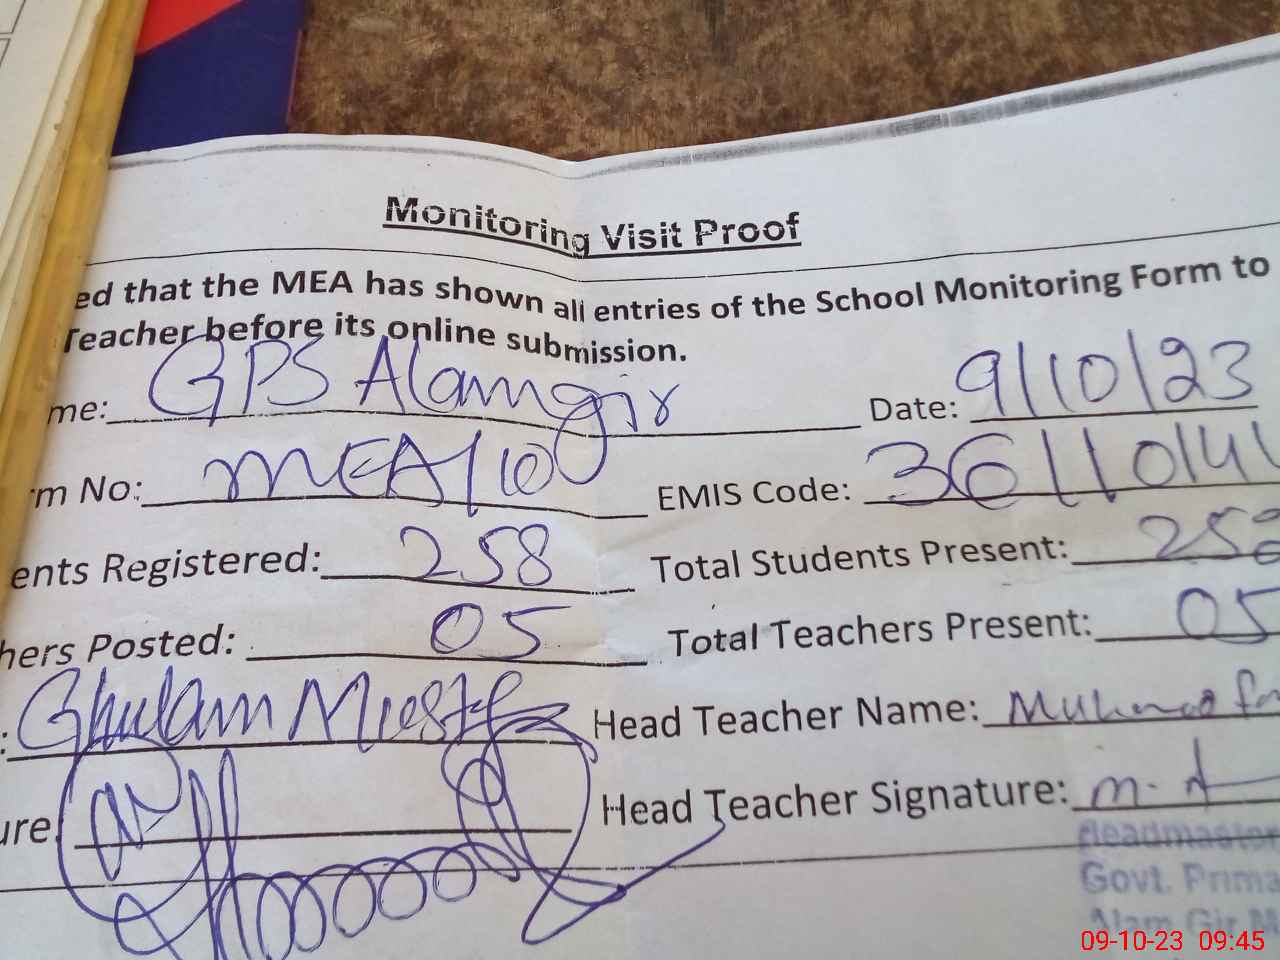 Monitoring Visit Proof
ed that the MEA has shown all entries of the School Monitoring Form to
Teacher before its online submission.
me: GPS Alamgir Date: 9/10/23
rm No: MEA/100 EMIS Code: 3611014
ents Registered: 258 Total Students Present: 25
hers Posted: 05 Total Teachers Present: 05
: Ghulam Mustafa Head Teacher Name:
ure Head Teacher Signature: M. A
Headmaster
Govt. Prima
Alam Gir M
09-10-23 09:45